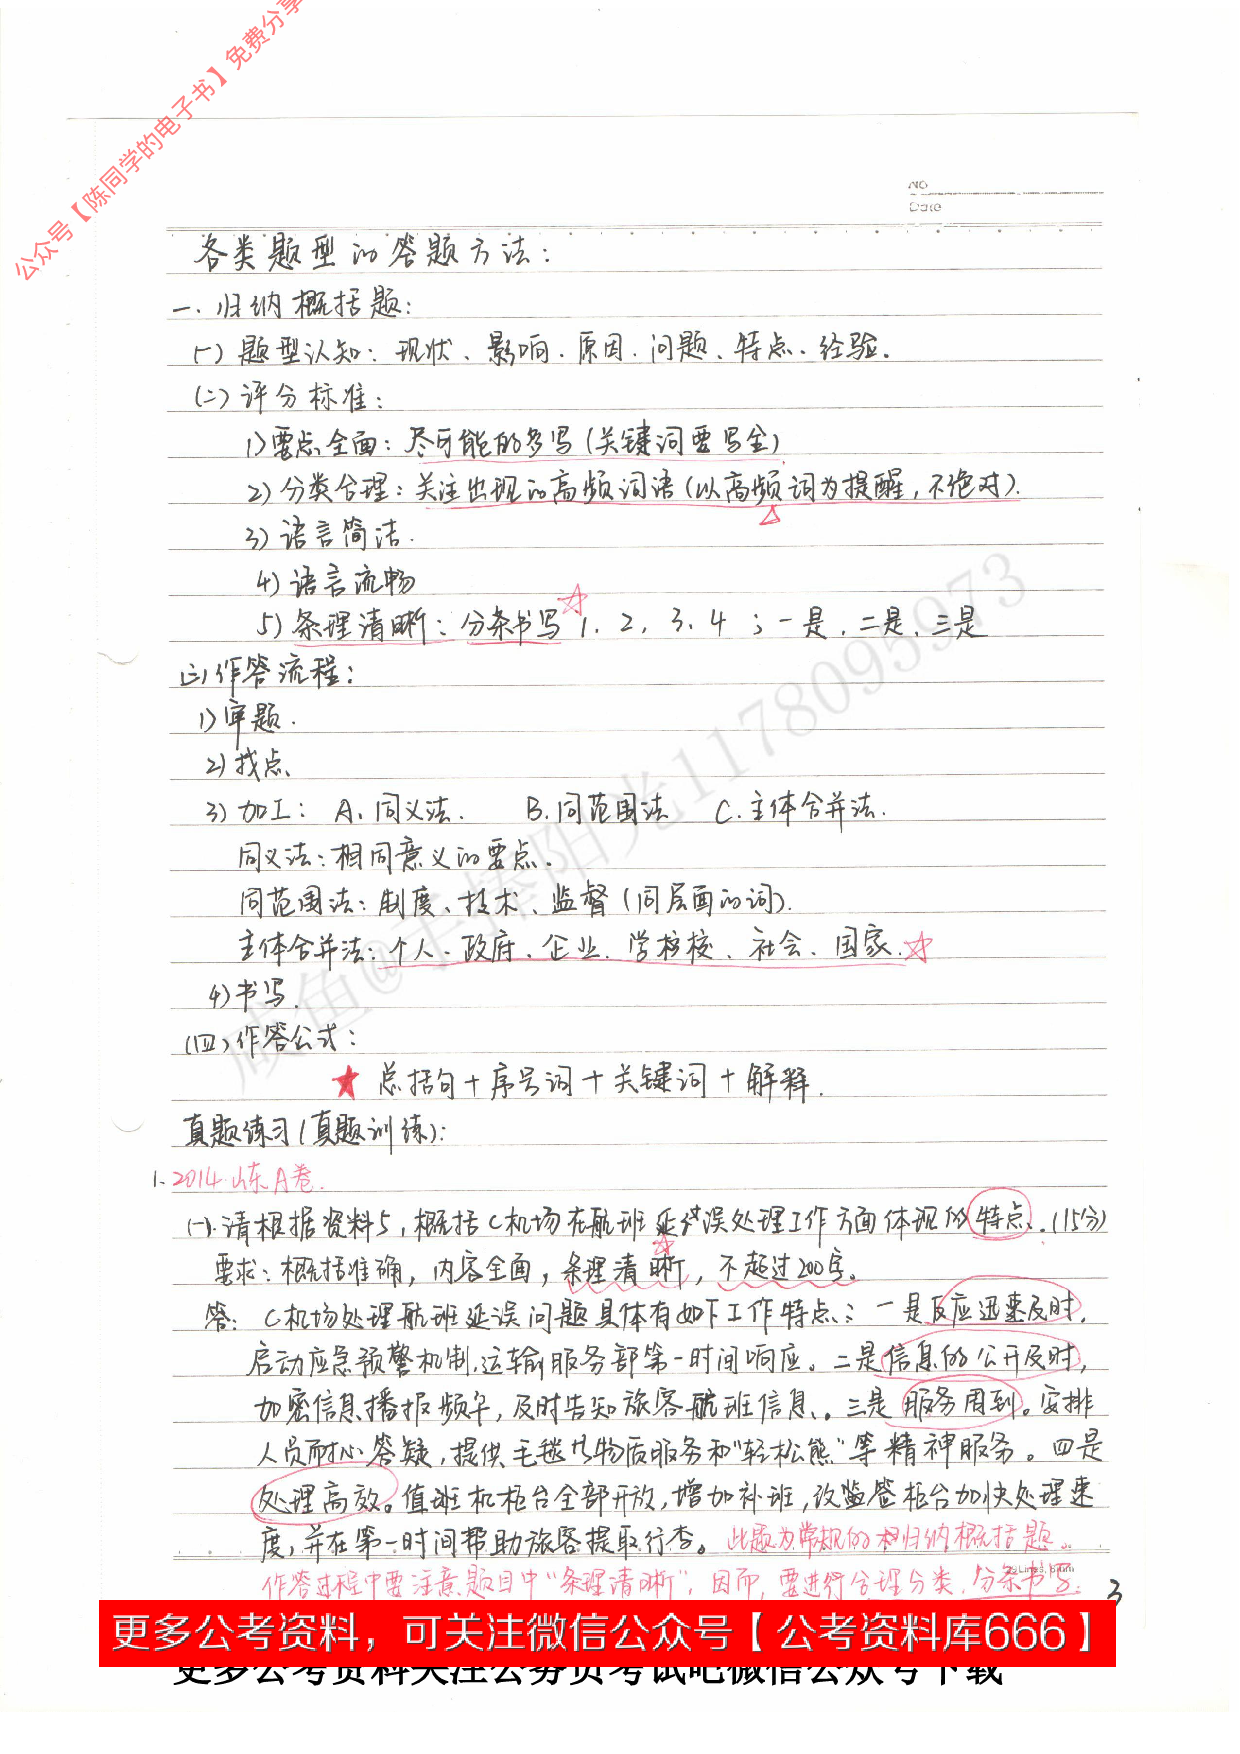 公众号【陈同学的电子书】免费分享
NO
Date
各类题型的答题方法：
一、归纳概括题：
(一)题型认知：现状、影响、原因、问题、特点、经验.
(二)评分标准：
1)要点全面：尽可能的多写(关键词要写全)
2)分类合理：关注出现的高频词语(以高频词为提醒,不绝对).
3)语言简洁.
4)语言流畅
5)条理清晰：分条书写 1. 2, 3. 4 ；一是.二是.三是
(三)作答流程：
1)审题.
2)找点、
3)加工： A.同义法. B.同范围法 C.主体合并法.
同义法：相同意义的要点.
同范围法：制度、技术、监督(同层面的词).
主体合并法：个人、政府、企业、学校、社会、国家.
4)书写.
(四)作答公式：
★ 总括句＋序号词＋关键词＋解释.
真题练习(真题训练)：
1. 2014.山东A卷.
(一).请根据资料5,概括C机场在航班延误处理工作方面体现的特点.(15分)
要求：概括准确，内容全面，条理清晰，不超过200字。
答： C机场处理航班延误问题具体有如下工作特点：一是反应迅速及时,
启动应急预警机制,运输服务部第一时间响应。二是信息的公开及时,
加密信息播报频率,及时告知旅客航班信息、。三是服务周到。安排
人员耐心答疑,提供毛毯等物质服务和“轻松熊”等精神服务。四是
处理高效。值班机柜台全部开放,增加补班,改监签柜台加快处理速
度,并在第一时间帮助旅客提取行李。此题为常规的归纳概括题。
作答过程中要注意题目中“条理清晰”,因而,要进行合理分类,分条书写.
3
更多公考资料，可关注微信公众号【公考资料库666】
更多公考资料关注公务员考试吧微信公众号下载
咸鱼@手捧阳光1178095973